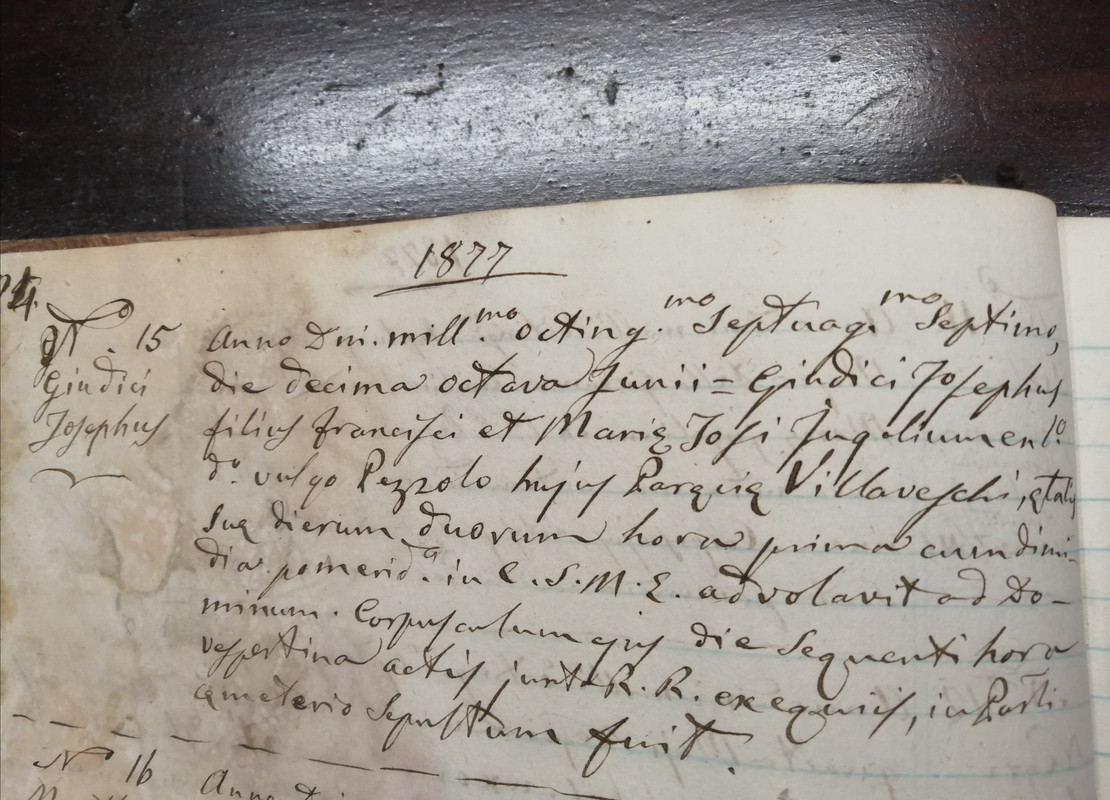 1877
24.
N.º 15
Giudici
Josephus
Anno Dni. mill.mo octing.mo Septuag.mo Septimo,
die decima octava Junii = Giudici Josephus
filius Francisci et Marię Josi Jugalium en l.º
d.º vulgo Pezzolo hujus Paręcię Villaveschi, ętatis
suę dierum duorum hora prima cum dimi-
dia pomerid.a in C. S. M. E. advolavit ad Do-
minum. Corpusculum ejus die sequenti hora
vespertina actis juxta R. R. exequiis, in Parli
cęmeterio sepultum fuit.
N.º 16
Anno